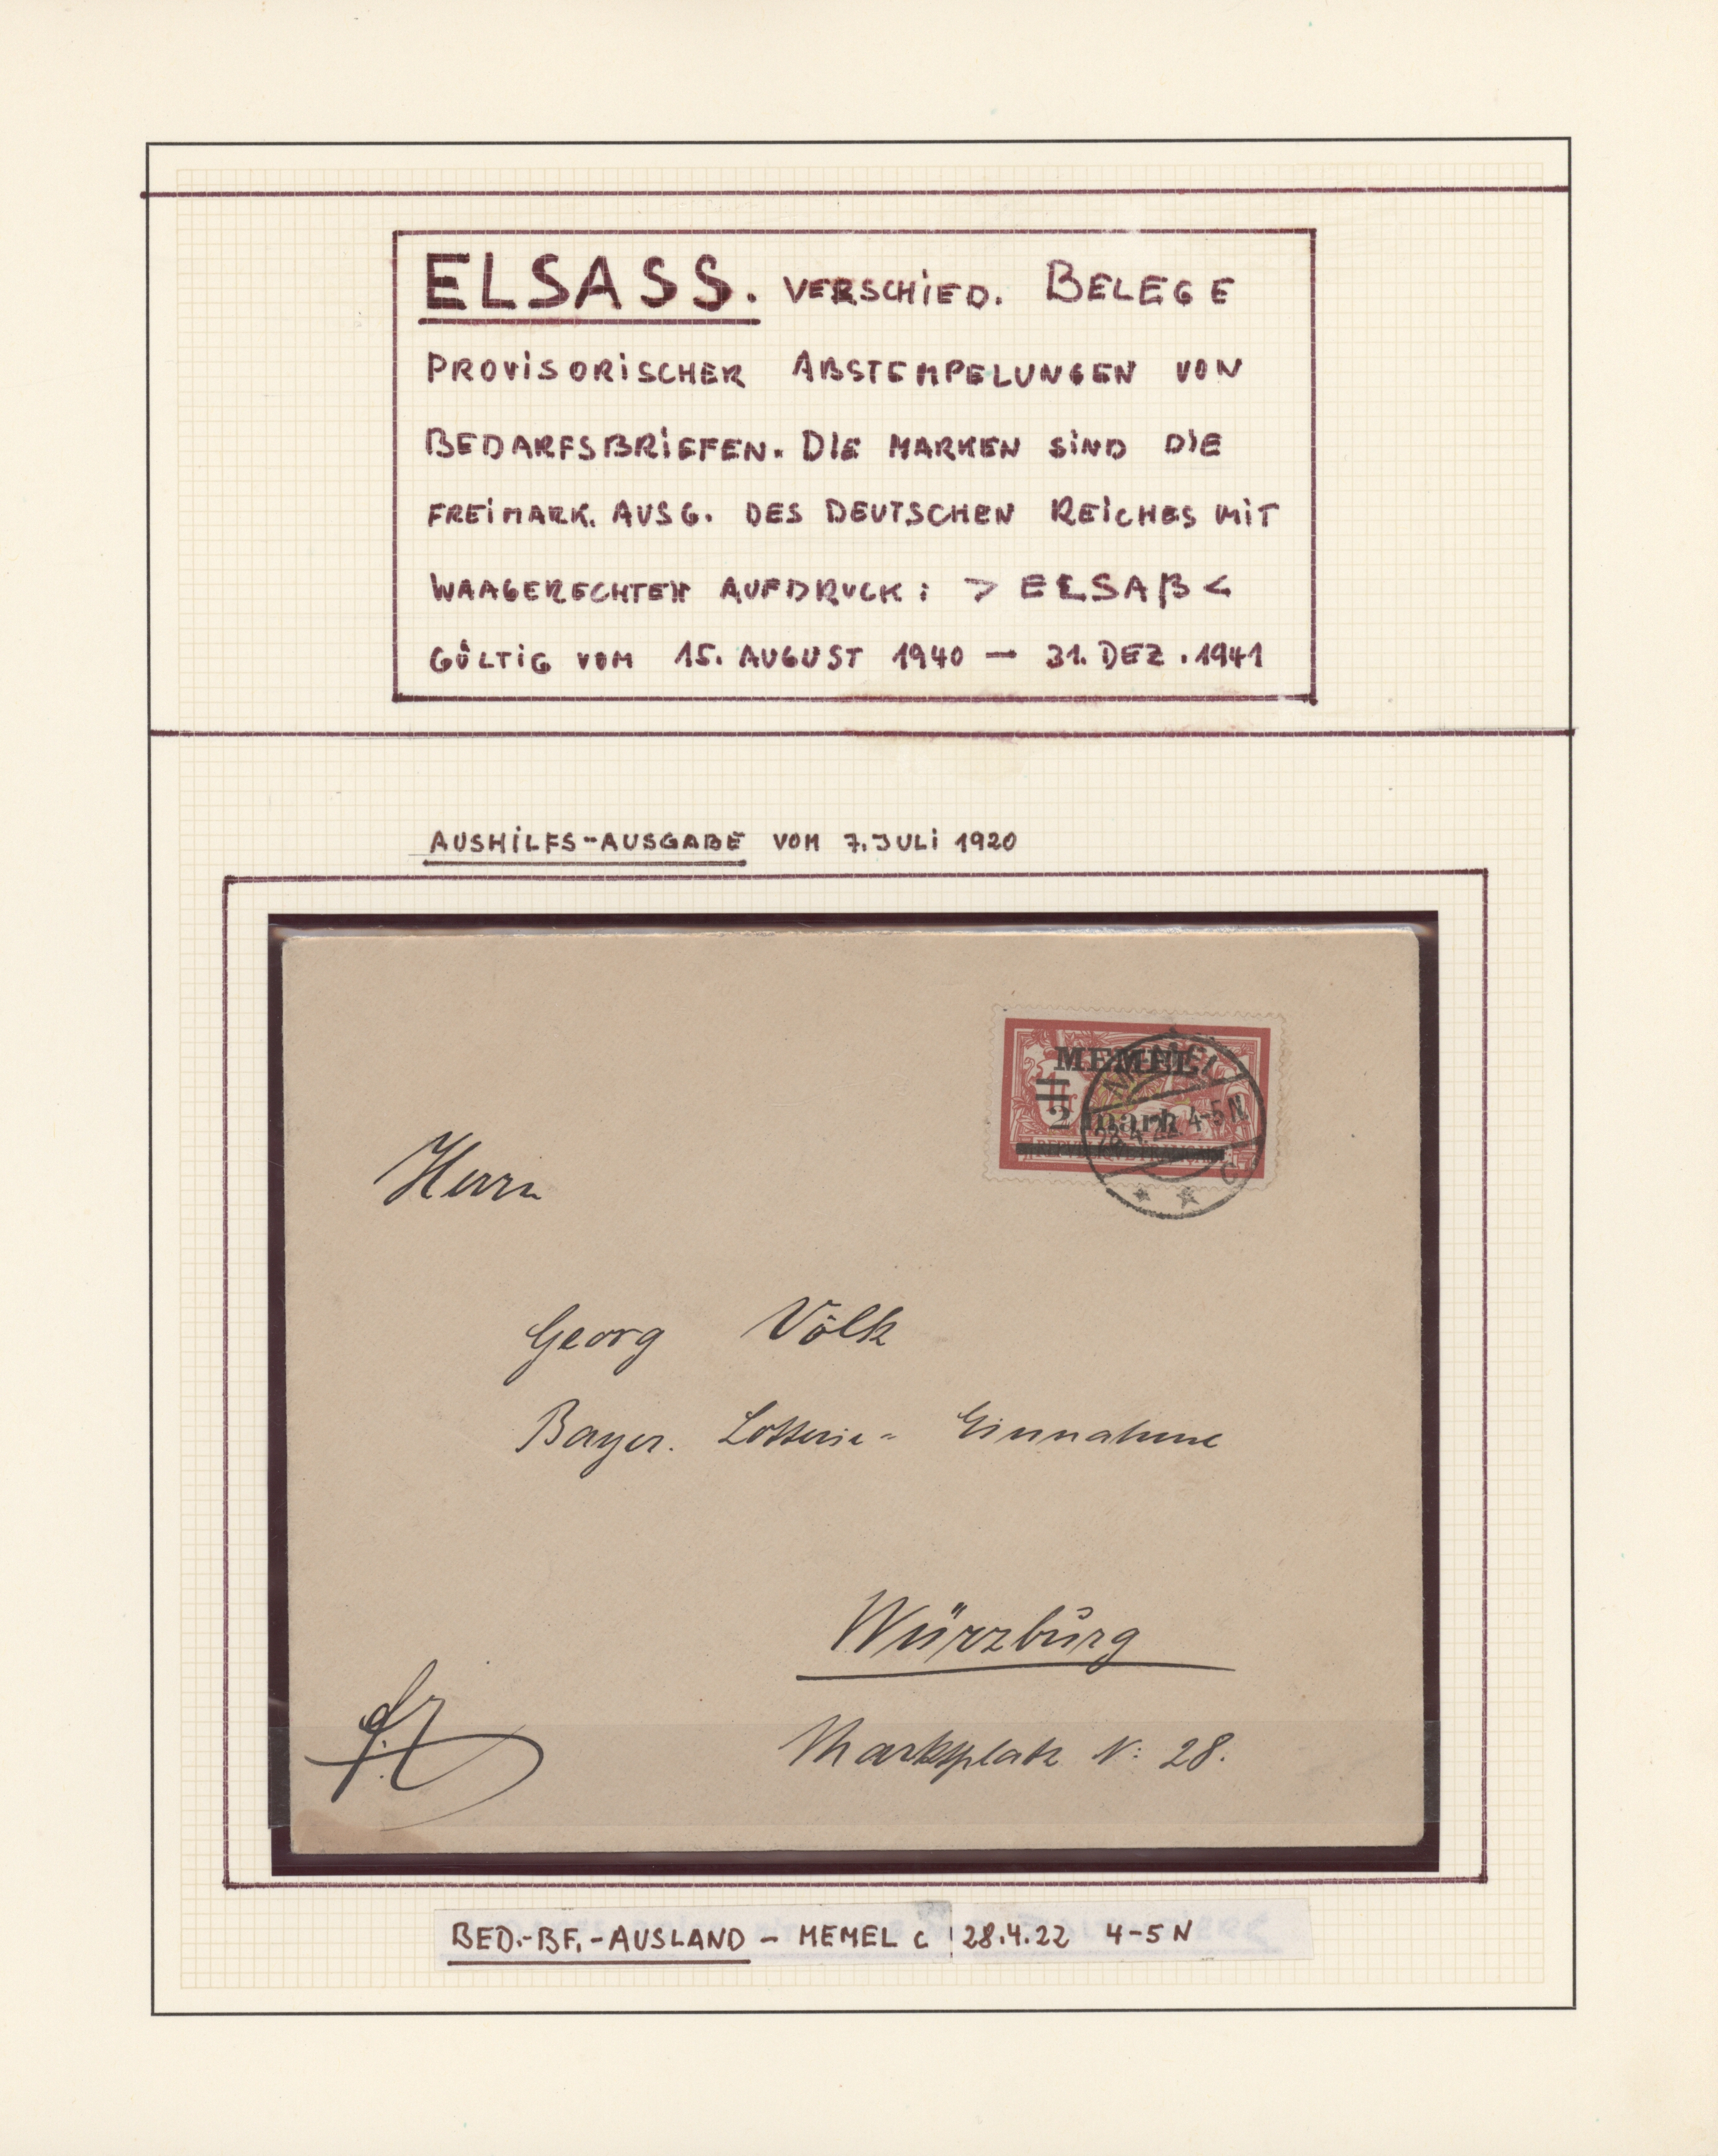 ELSASS. VERSCHIED. BELEGE
PROVISORISCHER ABSTEMPELUNGEN VON
BEDARFSBRIEFEN. DIE MARKEN SIND DIE
FREIMARK. AUSG. DES DEUTSCHEN REICHES MIT
WAAGERECHTEN AUFDRUCK: > ELSAß <
GÜLTIG VOM 15. AUGUST 1940 — 31. DEZ. 1941
AUSHILFS-AUSGABE VOM 7. JULI 1920
MEMEL
2 mark
REPUBLIQUE FRANÇAISE
MEMEL
28.4.22 4-5 N
C
Herrn
Georg Völk
Bayer. Lotterie- Einnahme
Würzburg
Marktplatz N: 28.
BED.-BF.-AUSLAND - MEMEL c 28.4.22 4-5 N